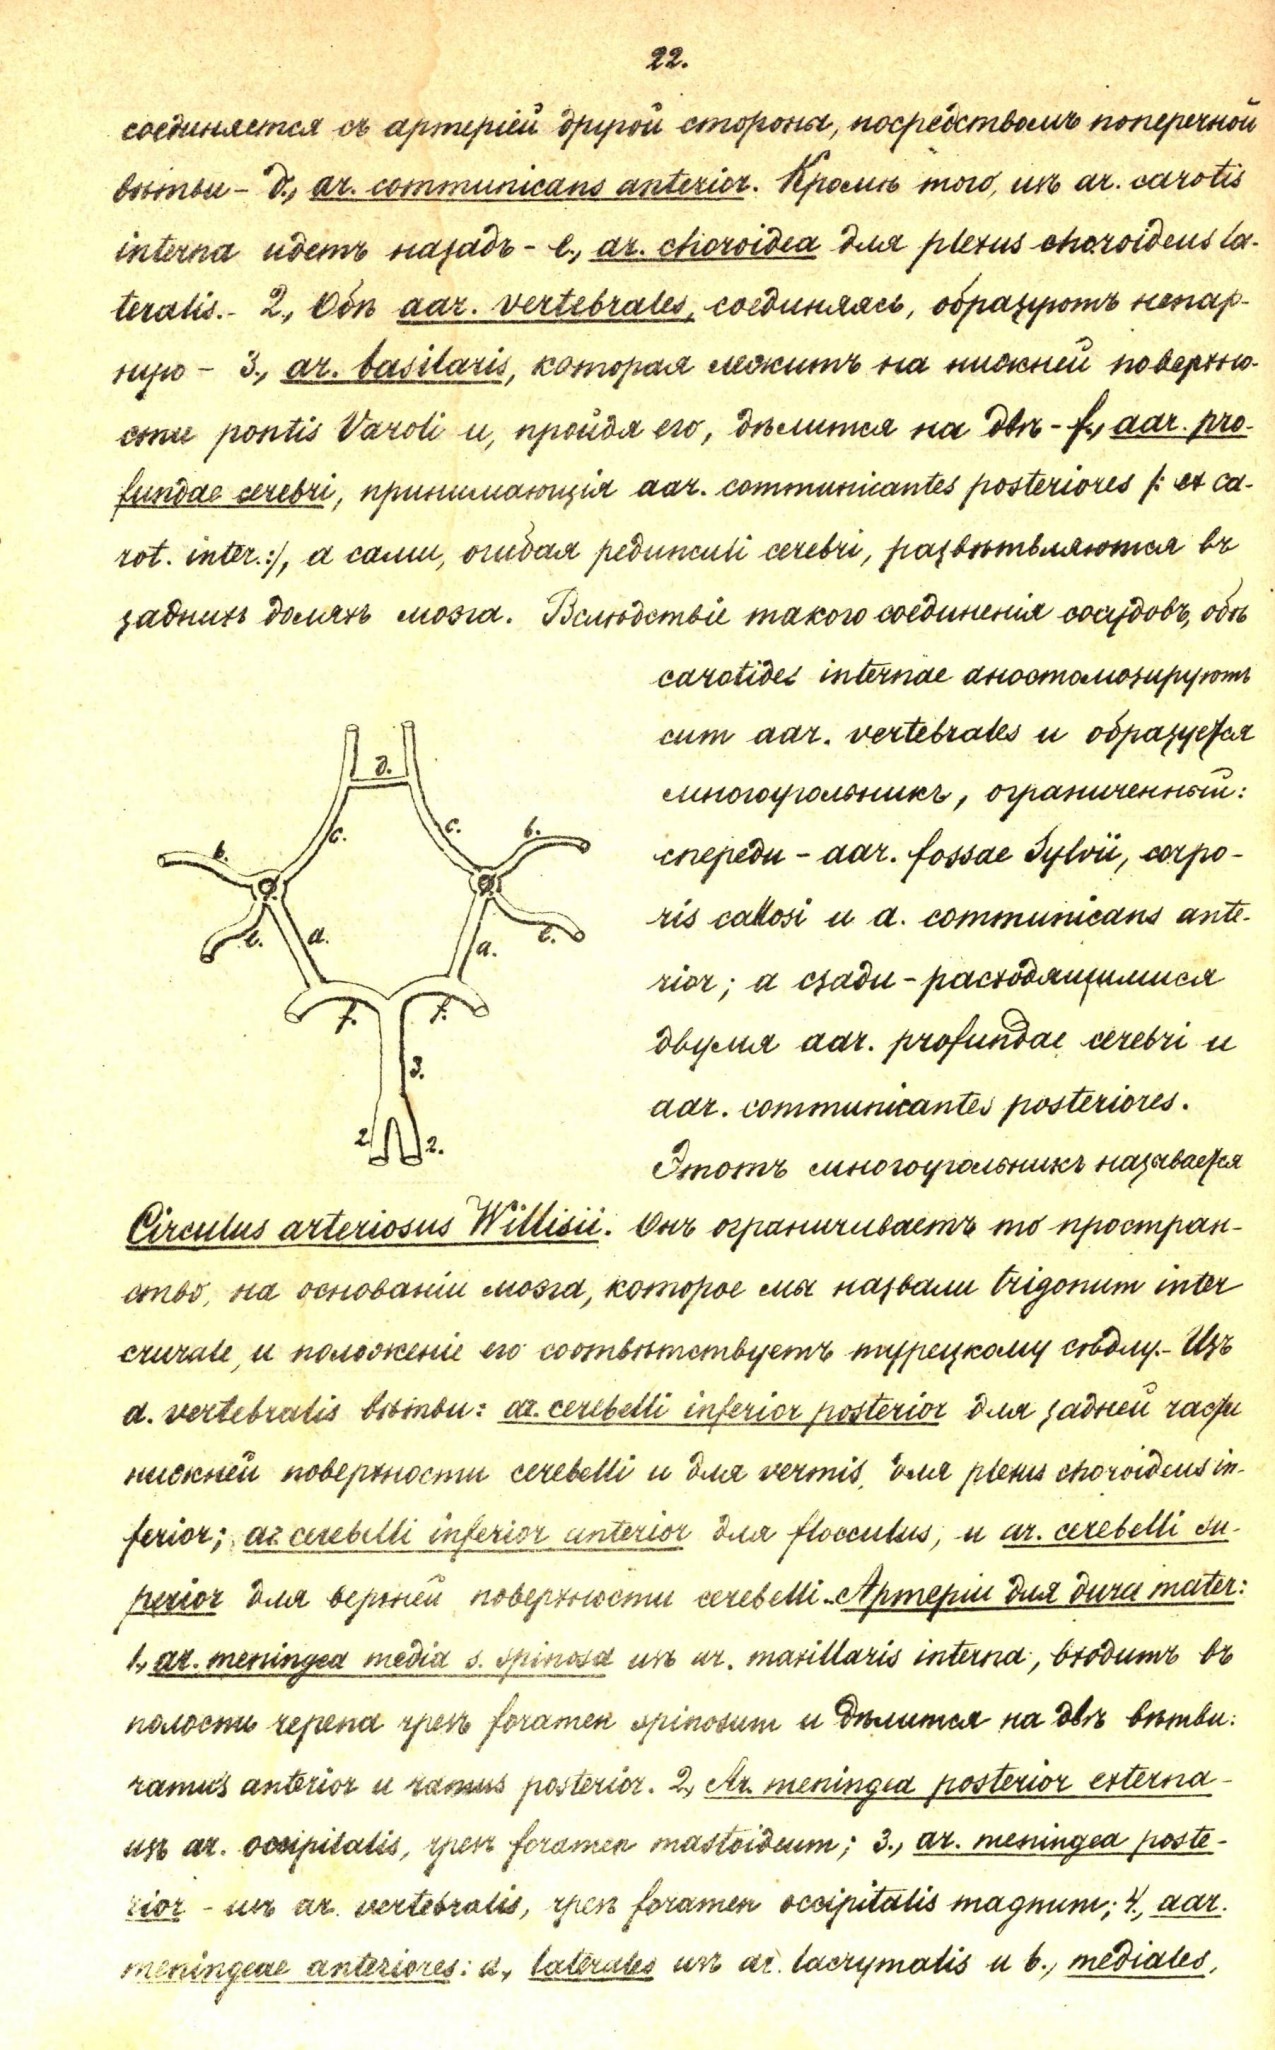 22.
соединяется съ артеріей другой стороны, посредствомъ поперечной
вѣтви – д., ar. communicans anterior. Кромѣ того, изъ ar. carotis
interna идетъ назадъ – e., ar. choroidea для plexus choroideus la-
teralis. – 2., Обѣ aar. vertebrales, соединяясь, образуютъ непар-
ную – 3., ar. basilaris, которая лежитъ на нижней поверхно-
сти pontis Varoli и, пройдя его, дѣлится на двѣ – f., aar. pro-
fundae cerebri, принимающія aar. communicantes posteriores /: ex ca-
rot. inter.:/, а сами, огибая pedunculi cerebri, развѣтвляются въ
заднихъ доляхъ мозга. Вслѣдствіе такого соединенія сосудовъ, обѣ
carotides internae анастомозируютъ
cum aar. vertebrales и образуется
многоугольникъ, ограниченный:
спереди – aar. fossae Sylvii, corpo-
ris callosi и a. communicans ante-
rior; а сзади – расходящимися
двумя aar. profundae cerebri и
aar. communicantes posteriores.
Этотъ многоугольникъ называется
д.
c. c.
b. b.
e. a. a. e.
f. f.
3.
2. 2.
Circulus arteriosus Willisii. Онъ ограничиваетъ то простран-
ство, на основаніи мозга, которое мы назвали trigonum inter
crurale, и положеніе его соотвѣтствуетъ турецкому сѣдлу. – Изъ
a. vertebralis вѣтви: ar. cerebelli inferior posterior для задней части
нижней поверхности cerebelli и для vermis, для plexus choroideus in-
ferior; ar. cerebelli inferior anterior для flocculus, и ar. cerebelli su-
perior для верхней поверхности cerebelli. – Артеріи для dura mater:
1., ar. meningea media s. spinosa изъ ar. maxillaris interna, входитъ въ
полость черепа чрезъ foramen spinosum и дѣлится на двѣ вѣтви:
ramus anterior и ramus posterior. 2, Ar. meningea posterior externa –
изъ ar. occipitalis, чрезъ foramen mastoideum; 3., ar. meningea poste-
rior – изъ ar. vertebralis, чрезъ foramen occipitalis magnum; 4., aar.
meningeae anteriores: a., laterales изъ ar. lacrymalis и b., mediales,